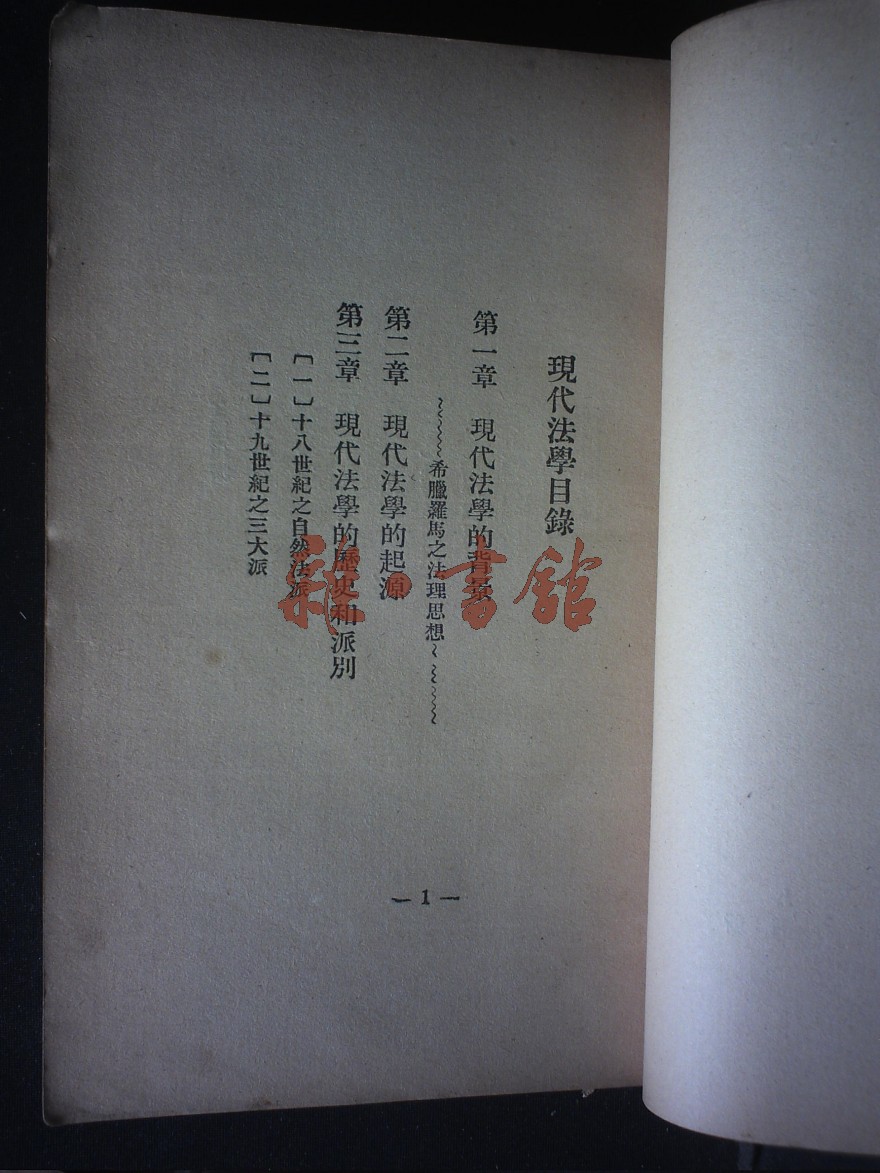 現代法學目錄
第一章 現代法學的背景
希臘羅馬之法理思想
第二章 現代法學的起源
第三章 現代法學的歷史和派別
〔一〕十八世紀之自然法派
〔二〕十九世紀之三大派
— 1 —
雜·書館